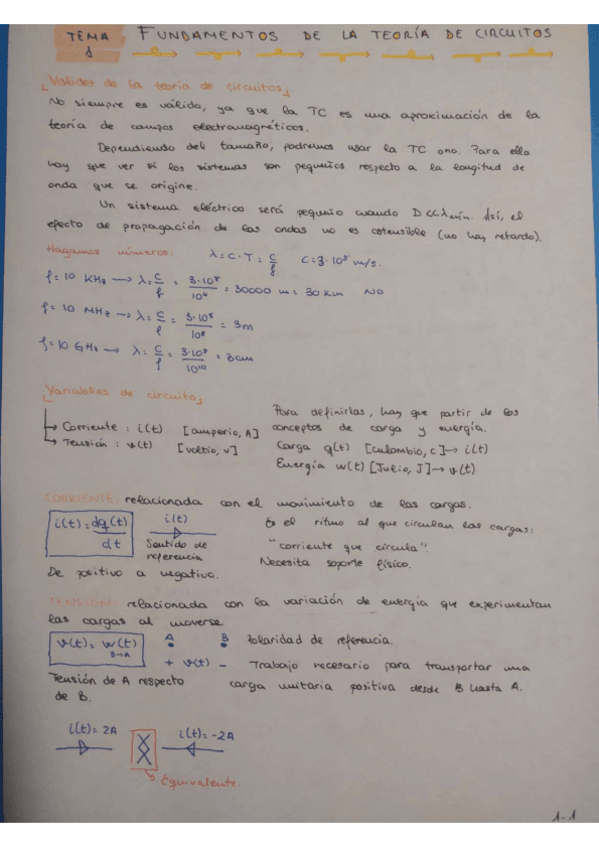 TEMA 1
FUNDAMENTOS DE LA TEORÍA DE CIRCUITOS
Validez de la teoría de circuitos
No siempre es válido, ya que la TC es una aproximación de la
teoría de campos electromagnéticos.
Dependiendo del tamaño, podremos usar la TC o no. Para ello
hay que ver si los sistemas son pequeños respecto a la longitud de
onda que se origine.
Un sistema eléctrico será pequeño cuando D<<λmín. Así, el
efecto de propagación de las ondas no es ostensible (no hay retardo).
Hagamos números: λ=C·T= C/f C=3·10⁸ m/s.
f=10 KHz → λ= C/f = 3·10⁸/10⁴ = 30000 m = 30 Km NO
f=10 MHz → λ= C/f = 3·10⁸/10⁸ = 3m
f=10 GHz → λ= C/f = 3·10⁸/10¹⁰ = 3cm
Variables de circuito
→ Corriente: i(t) [amperio, A]
→ Tensión: v(t) [voltio, v]
Para definirlas, hay que partir de los
conceptos de carga y energía.
Carga q(t) [culombio, c] → i(t)
Energía w(t) [Julio, J] → v(t)
CORRIENTE: relacionada con el movimiento de las cargas.
i(t)= dq(t)/dt
i(t)
Sentido de
referencia
Es el ritmo al que circulan las cargas:
"corriente que circula".
Necesita soporte físico.
De positivo a negativo.
TENSIÓN: relacionada con la variación de energía que experimentan
las cargas al moverse
v(t)= w(t) B→A
A B Polaridad de referencia.
+ v(t) - Trabajo necesario para transportar una
carga unitaria positiva desde B hasta A.
Tensión de A respecto
de B.
i(t)=2A i(t)=-2A
Equivalente.
1-1